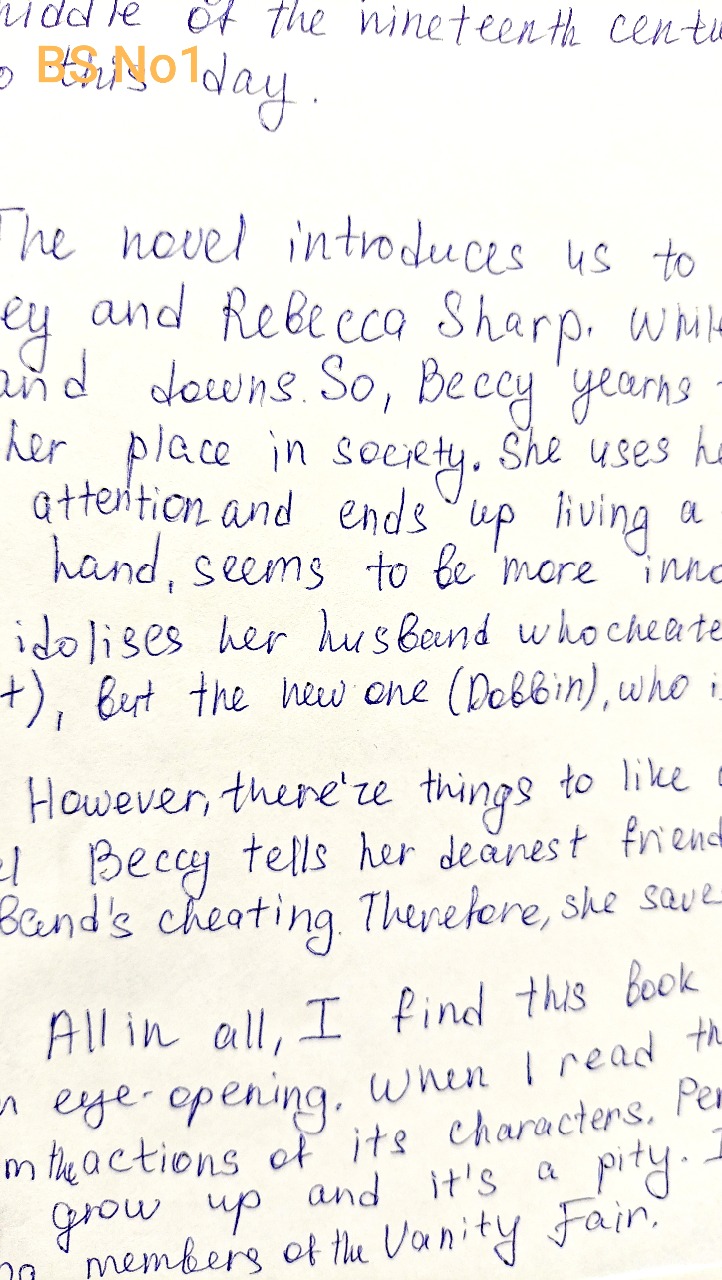 middle of the nineteenth centu
BS No1
o this day.
The novel introduces us to
ey and Rebecca Sharp. Whil
and downs. So, Beccy yearns
her place in society. She uses he
attention and ends up living a
hand, seems to be more inno
idolises her husband who cheate
t), but the new one (Dobbin), who i
However, there're things to like
el Beccy tells her dearest friend
band's cheating. Therefore, she save
All in all, I find this book
n eye-opening. When I read th
m the actions of its characters. Per
grow up and it's a pity. I
members of the Vanity Fair.